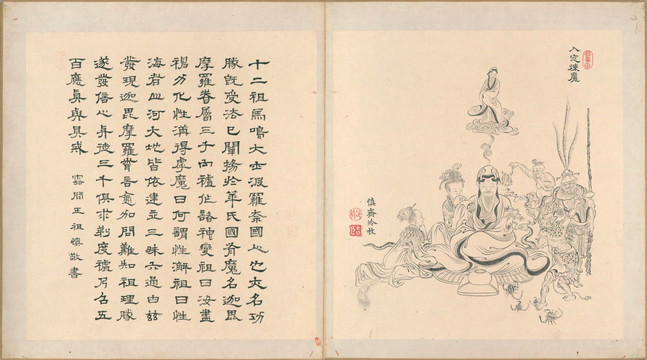 入定降魔
慎齋冷枚
十二祖馬鳴大士波羅柰國人也亦名功
勝既受法已闡揚於華氏國有魔名迦毘
摩羅眷屬三千而種作諸神變祖曰汝盡
神力化性海得虖魔曰何謂性海祖曰性
海者山河大地皆依建立三昧六通由茲
發現迦毘摩羅聞言愈加問難知祖理勝
遂發信心與徒三千俱求剃度祖乃召五
百應真與具戒
雲間王祖慎敬書